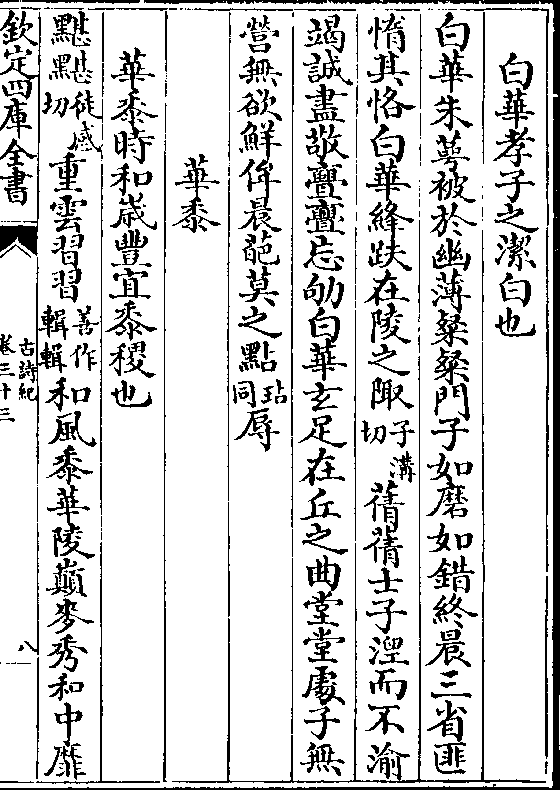 白華孝子之潔白也
白華朱萼被於幽薄粲粲門子如磨如錯終晨三省匪
惰其恪白華絳趺在陵之陬子溝切蒨蒨士子涅而不渝
竭誠盡敬亹亹忘劬白華玄足在丘之曲堂堂處子無
營無欲鮮侔晨葩莫之點玷同辱
華黍
華黍時和歲豐宜黍稷也
黮黮徒感切重雲習習善作輯輯和風黍華陵巔麥秀和中靡
欽定四庫全書
古詩紀
卷三十三
八